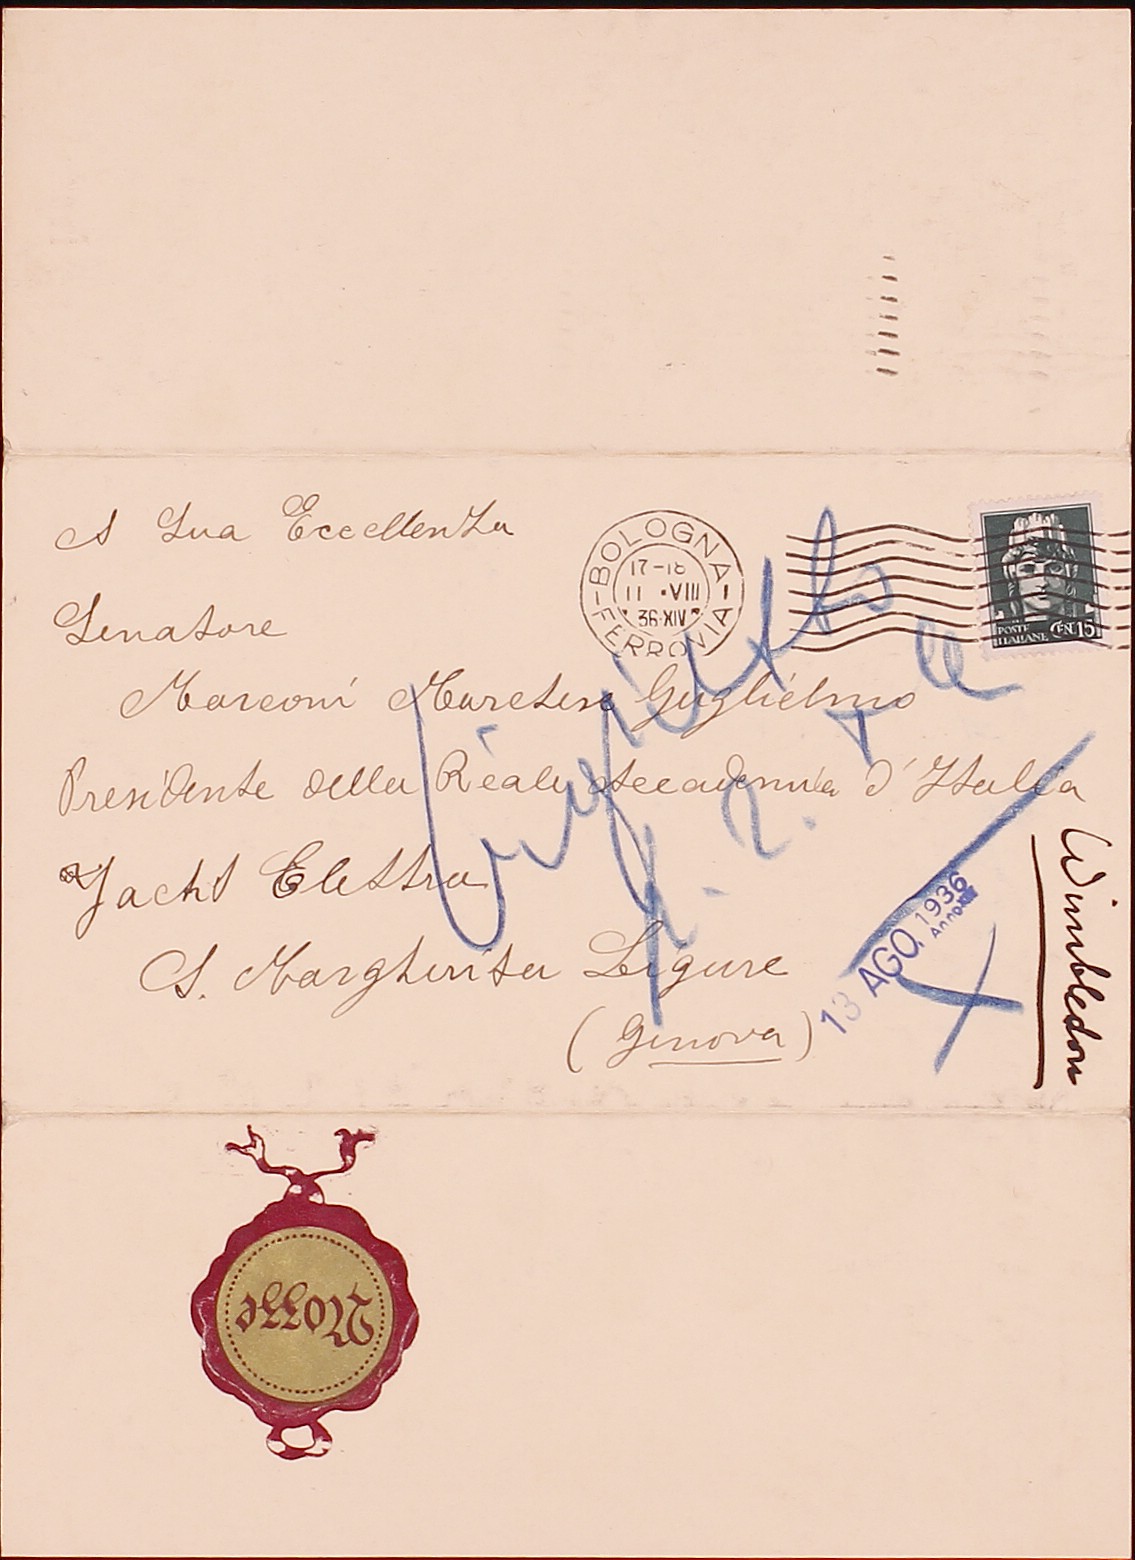 A Sua Eccellenza
BOLOGNA
17-18
11 · VIII
36·XIV
FERROVIA
POSTE
ITALIANE CENT 15
Senatore
Marconi Marchese Guglielmo
Presidente della Reale Accademia d'Italia
Yacht Elettra
S. Margherita Ligure
(Genova)
13 AGO. 1936
Wimbledon
Nozze